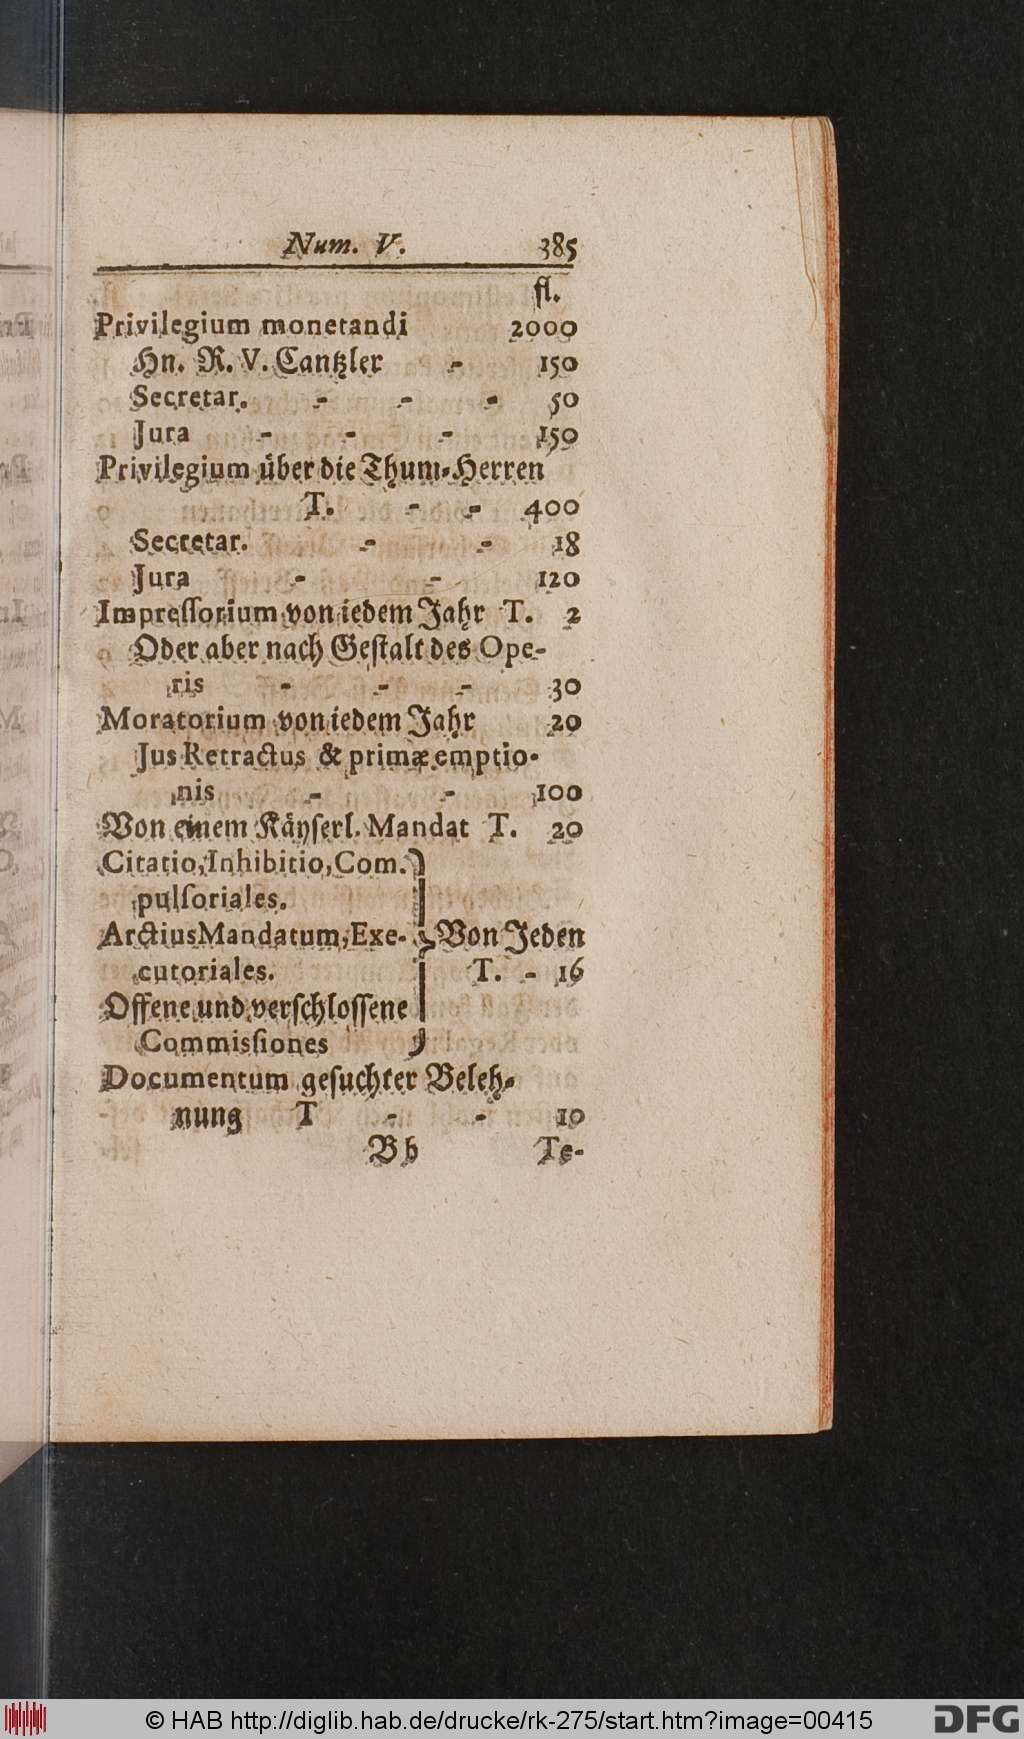 Num. V. 385
fl.
Privilegium monetandi 2000
Hn. R. V. Cantzler - 150
Secretar. - - - 50
Jura - - - 150
Privilegium über die Thum-Herren
T. - - 400
Secretar. - - 18
Jura - - 120
Impreſſorium von iedem Jahr T. 2
Oder aber nach Geſtalt des Ope-
ris - - - 30
Moratorium von iedem Jahr 20
Jus Retractus & primæ emptio-
nis - - 100
Von einem Käyſerl. Mandat T. 20
Citatio, Inhibitio, Com-
pulſoriales.
Arctius Mandatum, Exe- } Von Jeden
cutoriales. T. - 16
Offene und verſchloſſene
Commisſiones
Documentum geſuchter Beleh-
nung T - - 10
Bb Te-
© HAB http://diglib.hab.de/drucke/rk-275/start.htm?image=00415
DFG